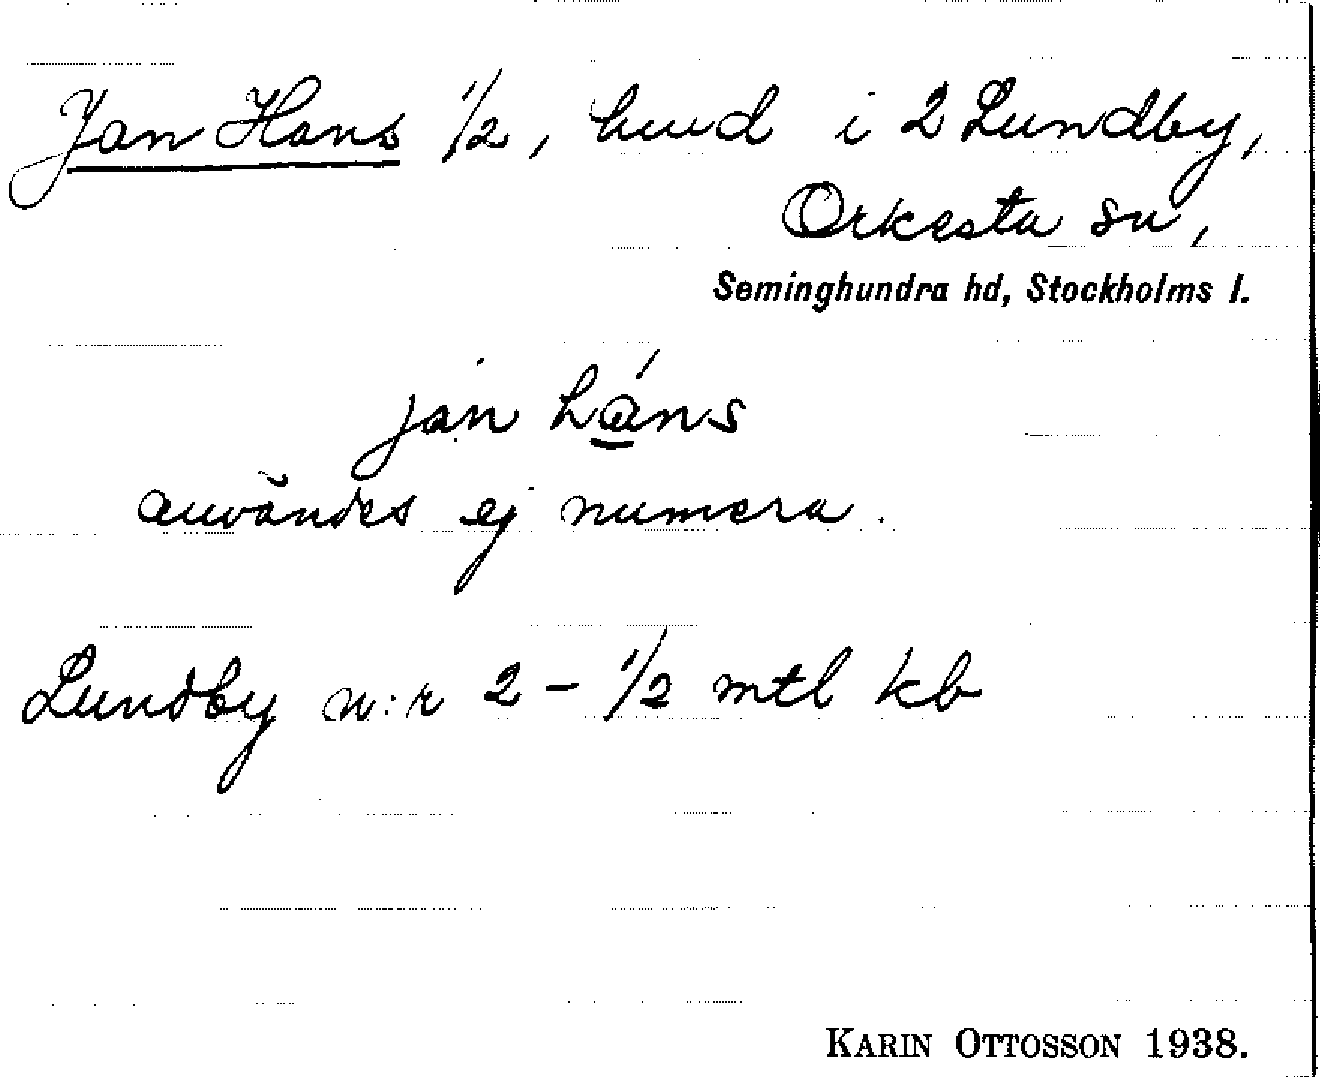 Jan Hans 1/2, hmd i 2 Lundby,
Orkesta sn,
Seminghundra hd, Stockholms l.
jan háns
användes ej numera.
Lundby n:r 2 – 1/2 mtl kb
KARIN OTTOSSON 1938.